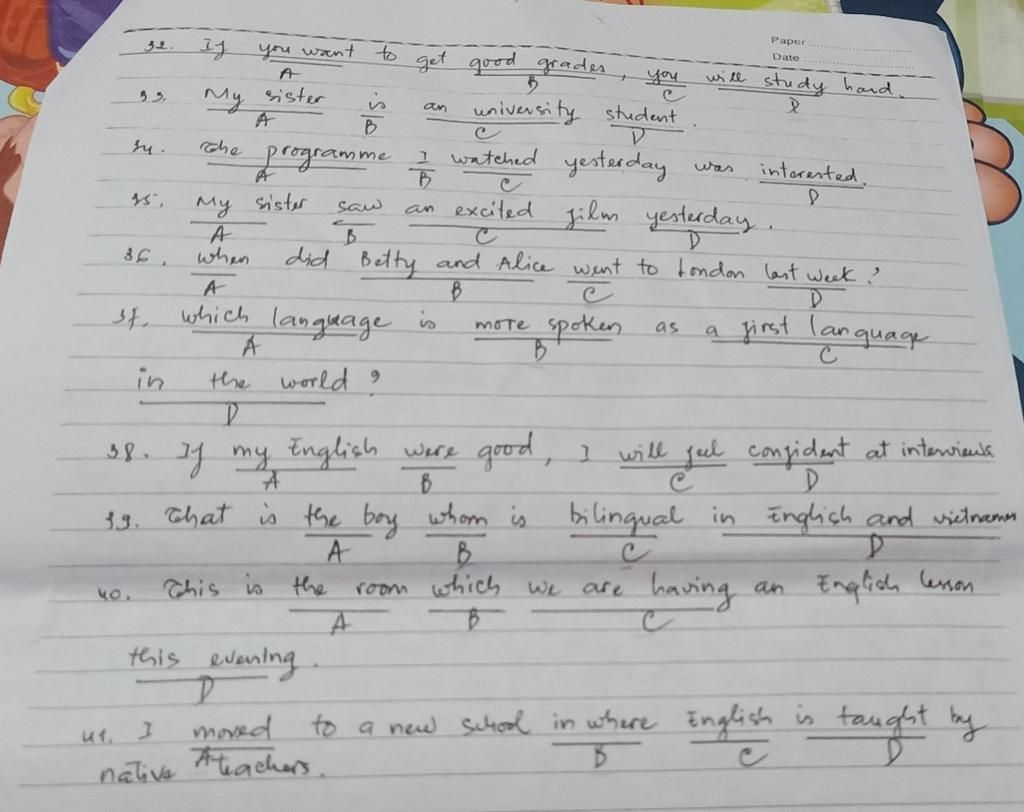 Paper
Date
32. If you want to get good grades, you will study hard.
A B C D
33. My sister is an university student.
A B C D
34. The programme I watched yesterday was interested.
A B C D
35. My sister saw an excited film yesterday.
A B C D
36. When did Betty and Alice went to London last week?
A B C D
37. Which language is more spoken as a first language
A B C
in the world?
D
38. If my English were good, I will feel confident at interviews
A B C D
39. That is the boy whom is bilingual in English and
A B C D
40. This is the room which we are having an English lesson
A B C
this evening.
D
41. I moved to a new school in where English is taught by
A B C D
native teachers.